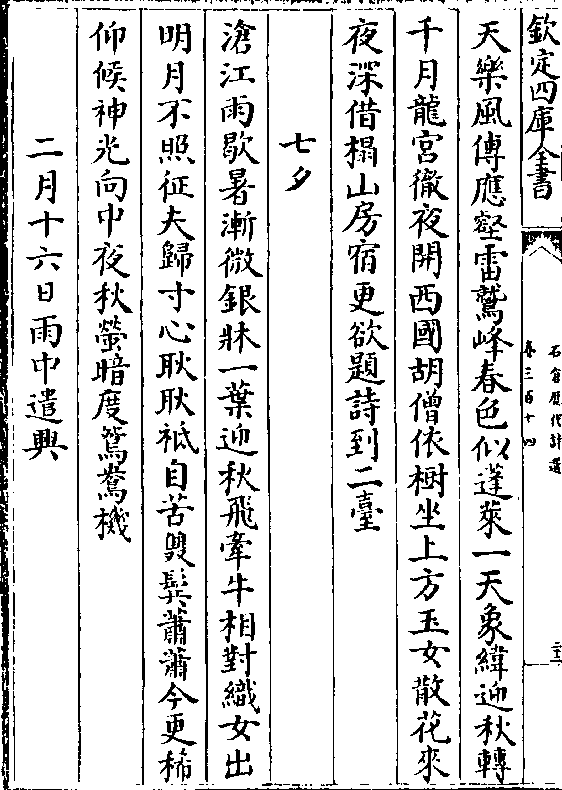 欽定四庫全書
石倉歷代詩選
卷三百十四
二十三
天樂風傳應壑雷鷲峰春色似蓬萊一天象緯迎秋轉
千月龍宮徹夜開西國胡僧依樹坐上方玉女散花來
夜深借榻山房宿更欲題詩到二臺
七夕
滄江雨歇暑漸微銀牀一葉迎秋飛牽牛相對織女出
明月不照征夫歸寸心耿耿祗自苦雙鬂蕭蕭今更稀
仰候神光向中夜秋螢暗度鴛鴦機
二月十六日雨中遣興